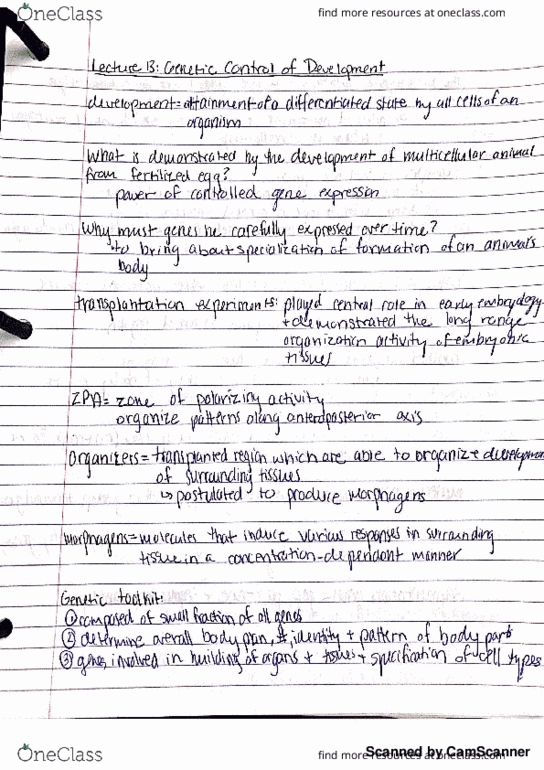 OneClass
find more resources at oneclass.com
Lecture 13: Genetic Control of Development
development = attainment of a differentiated state by all cells of an
organism
What is demonstrated by the development of multicellular animal
from fertilized egg?
power of controlled gene expression
Why must genes be carefully expressed over time?
to bring about specialization of formation of an animal's
body
transplantation experiments: played central role in early embryology
+ demonstrated the long range
organization activity of embryonic
tissues
ZPA = zone of polarizing activity
organize patterns along anteroposterior axis
Organizers = transplanted region which are able to organize development
of surrounding tissues
↳ postulated to produce morphagens
Morphagens = molecules that induce various responses in surrounding
tissue in a concentration-dependant manner
Genetic toolkit:
① composed of small fraction of all genes
② determine overall body plan, #, identity + pattern of body parts
③ genes involved in building of organs + tissues + specification of cell types
OneClass
find more resources at oneclass.com
Scanned by CamScanner